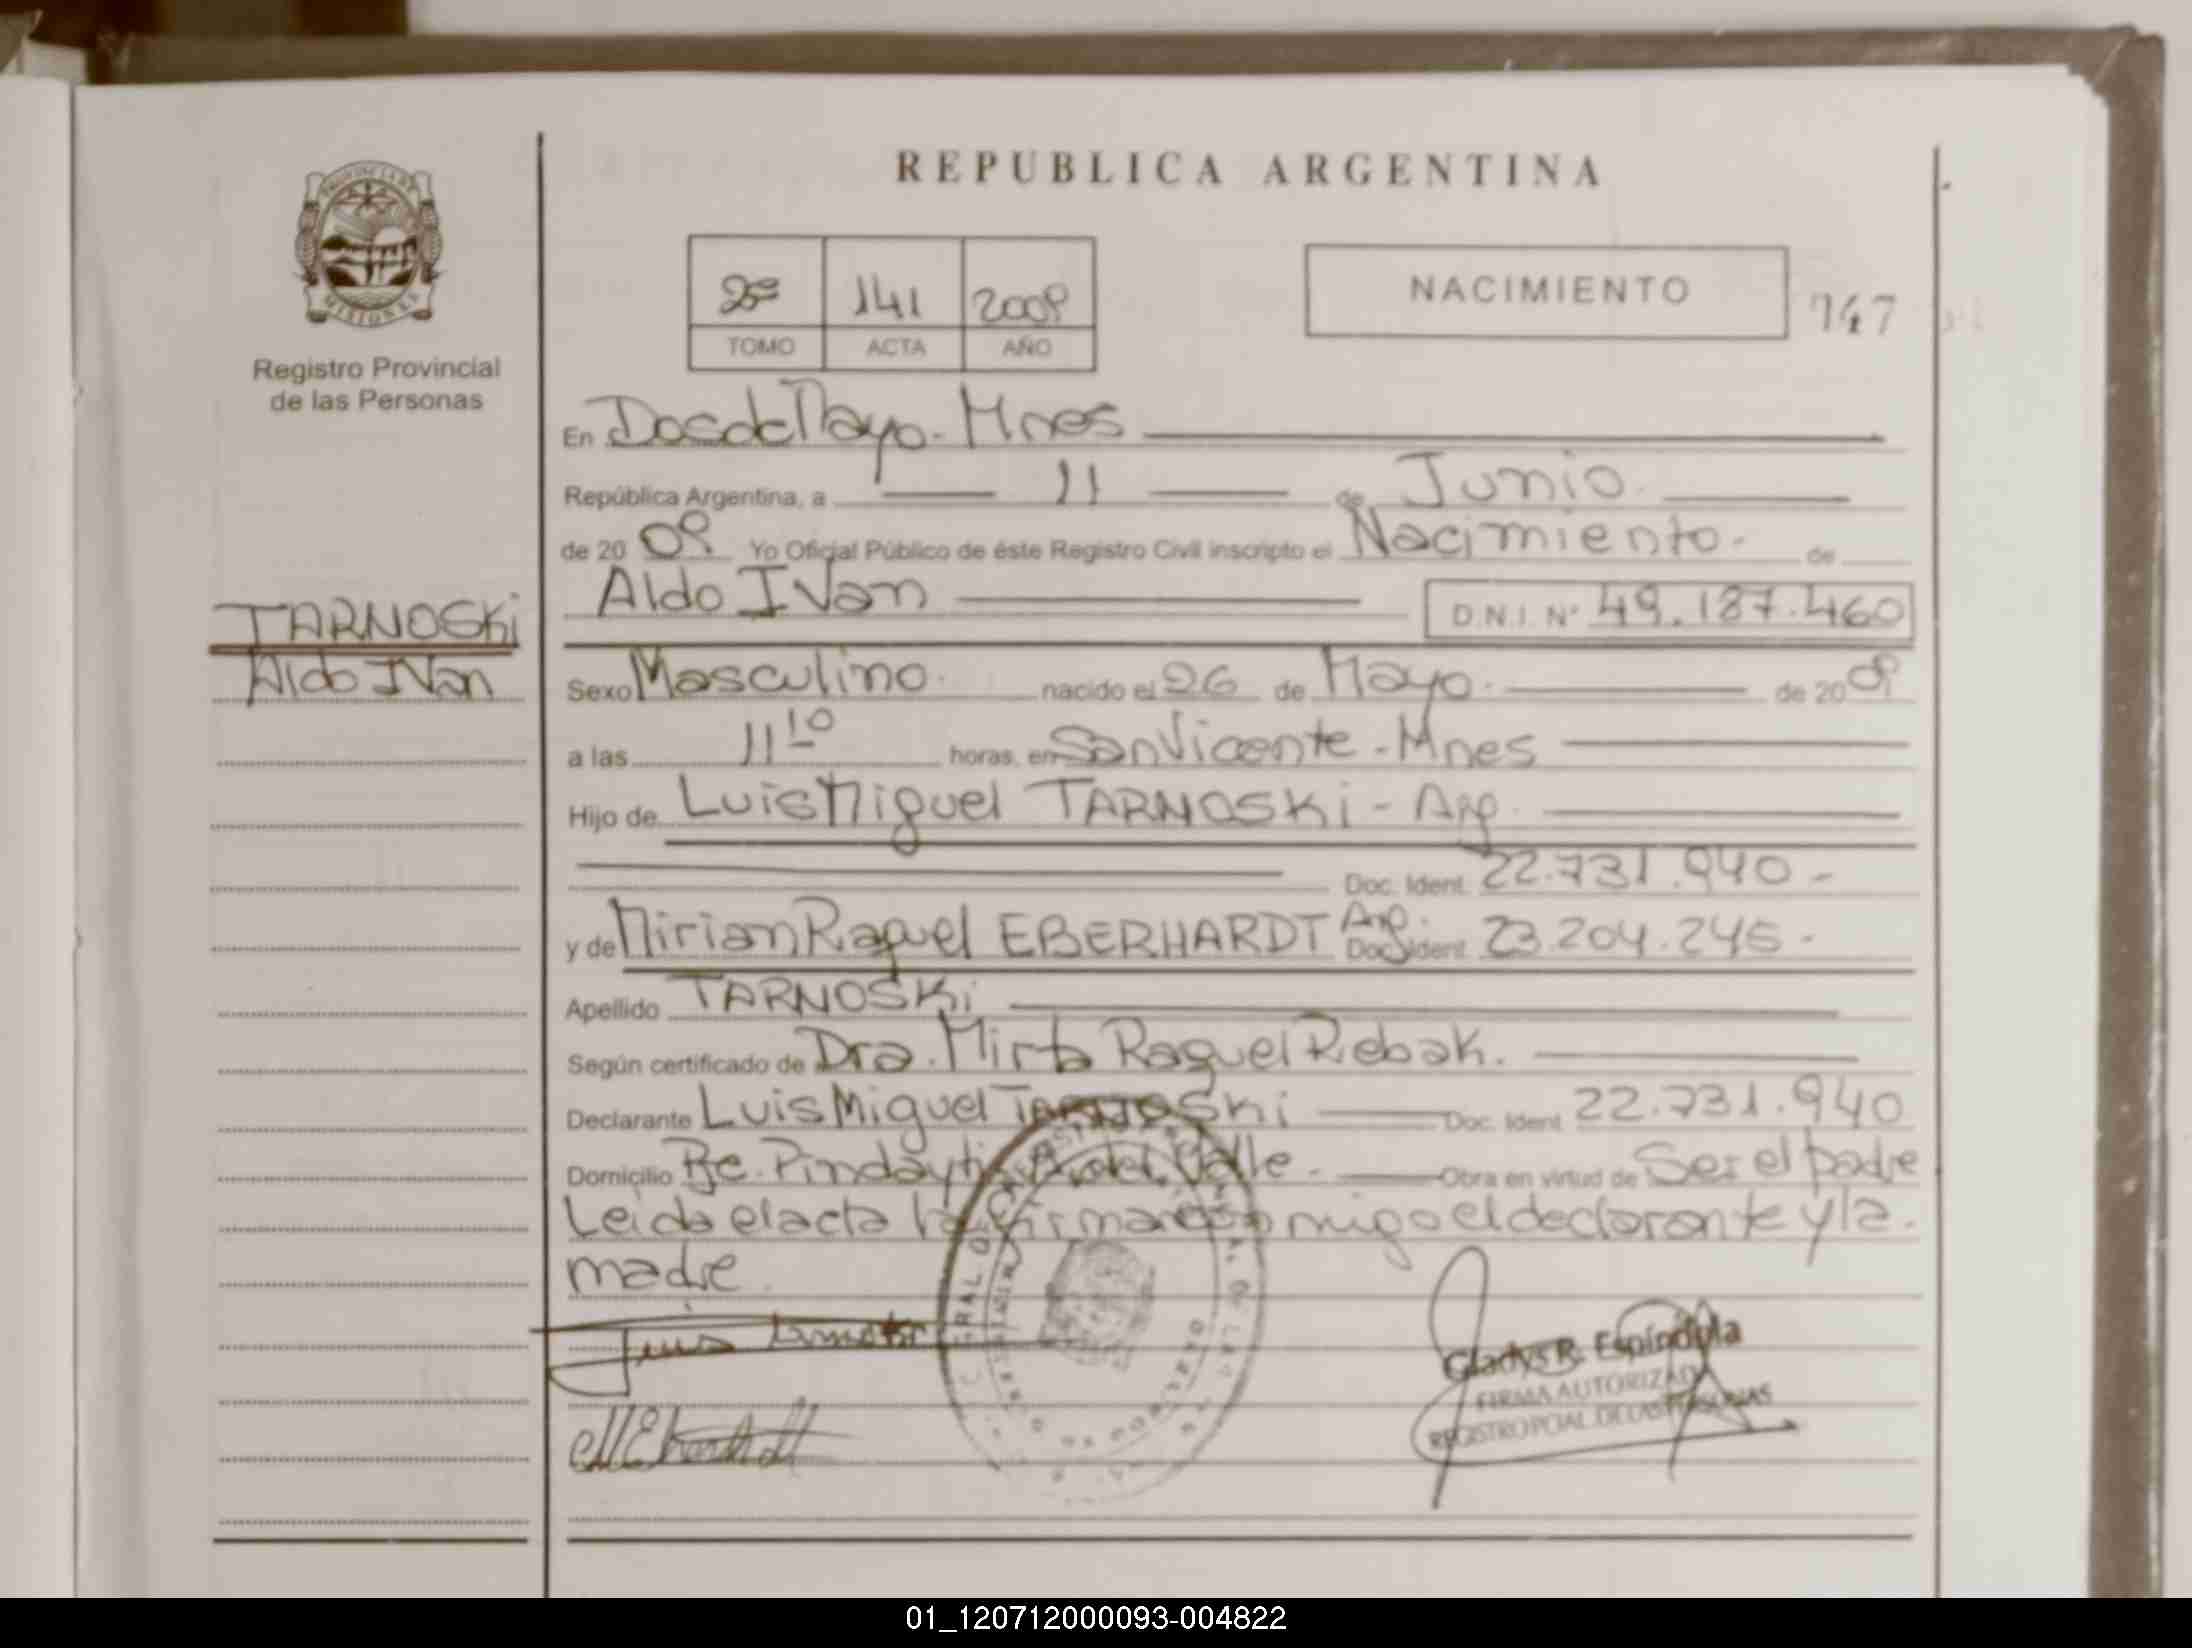 REPUBLICA ARGENTINA
PROVINCIA DE
MISIONES
Registro Provincial
de las Personas
2º 141 2009
TOMO ACTA AÑO
NACIMIENTO
747
En Dos de Mayo - Mnes
República Argentina, a 11 de Junio.
de 20 09 Yo Oficial Público de éste Registro Civil inscripto el Nacimiento. de
Aldo IVan D.N.I. Nº 49.187.460
TARNOSKi
Aldo IVan
Sexo Masculino. nacido el 26 de Mayo. de 20 09
a las 11 10 horas, en San Vicente - Mnes
Hijo de Luis Miguel TARNOSKi - Arg.
Doc. Ident. 22.731.940 -
y de Mirian Raquel EBERHARDT Arg. Doc. Ident. 23.204.245 -
Apellido TARNOSKi
Según certificado de Dra. Mirta Raquel Rebak.
Declarante Luis Miguel TARNOSKi Doc. Ident. 22.731.940
Domicilio Pindayti A. del Valle - Obra en virtud de Ser el padre
Leida el acta la firman conmigo el declarante y la.
madre.
Gladys R. Espíndola
FIRMA AUTORIZADA
REGISTRO PCIAL. DE LAS PERSONAS
01_120712000093-004822